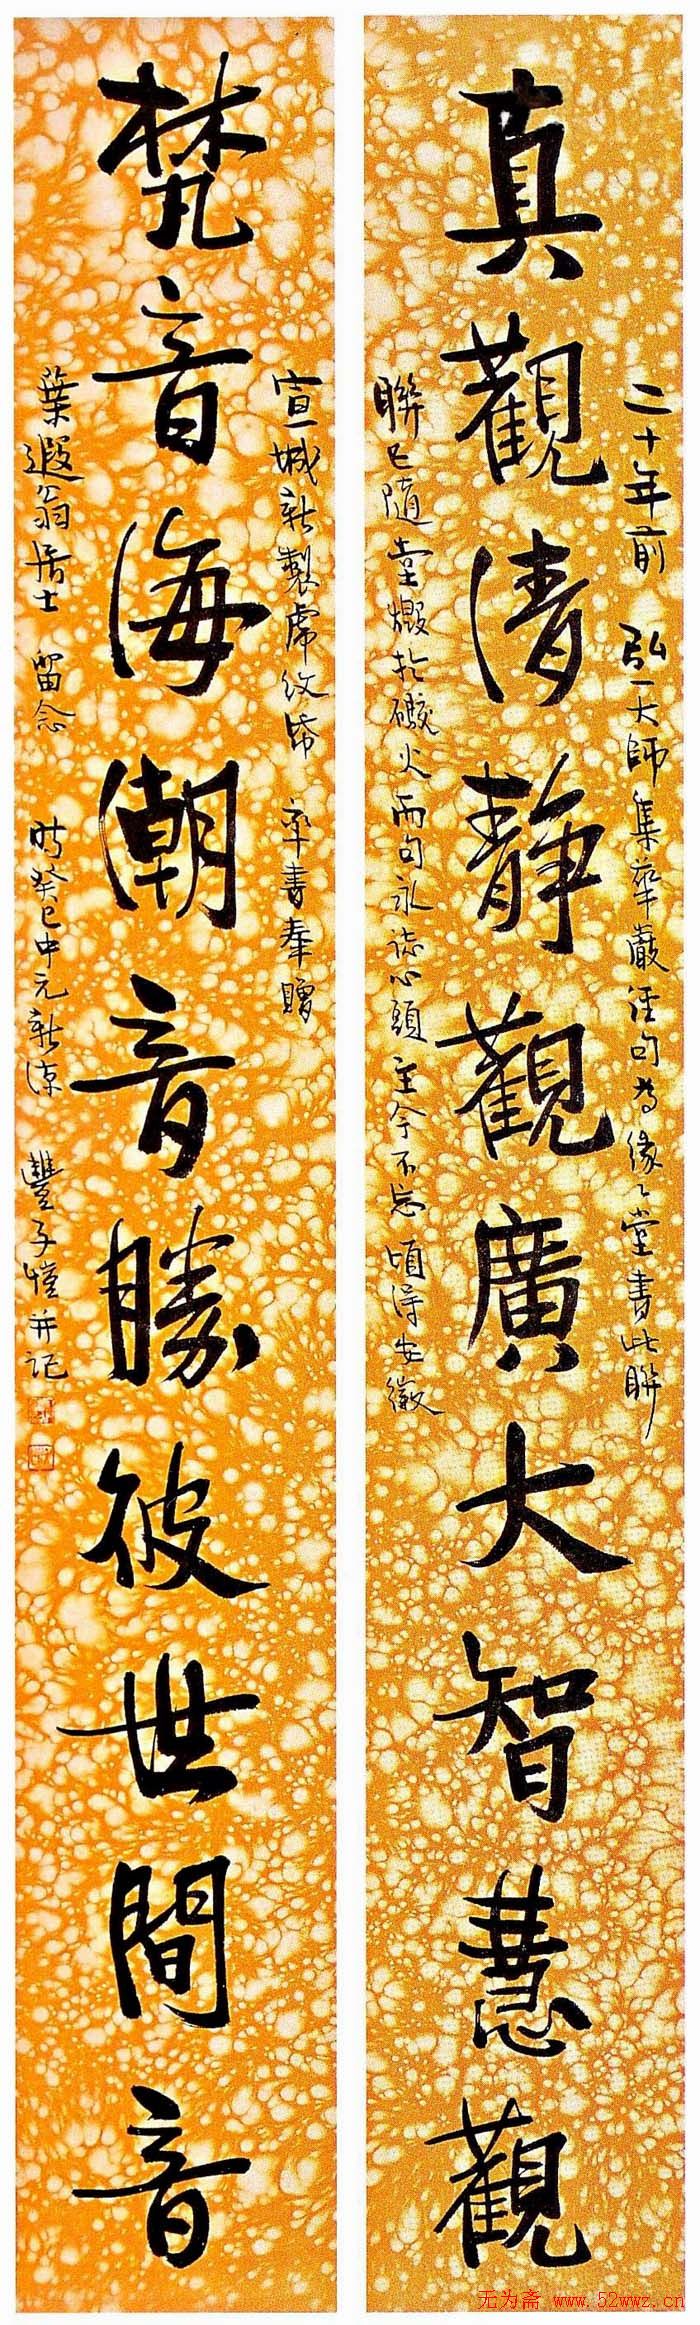 真觀清静觀廣大智慧觀
梵音海潮音勝彼世間音
二十年前 弘一大師集華嚴經句為緣〻堂書此聯
聯已隨堂燬於礮火而句永誌心頭至今不忘頃得安徽
宣城新製虎紋帋 率書奉贈
葉遐翁居士 留念 時癸巳中元新涼 豐子愷并記
无为斋 www.52wwz.cn